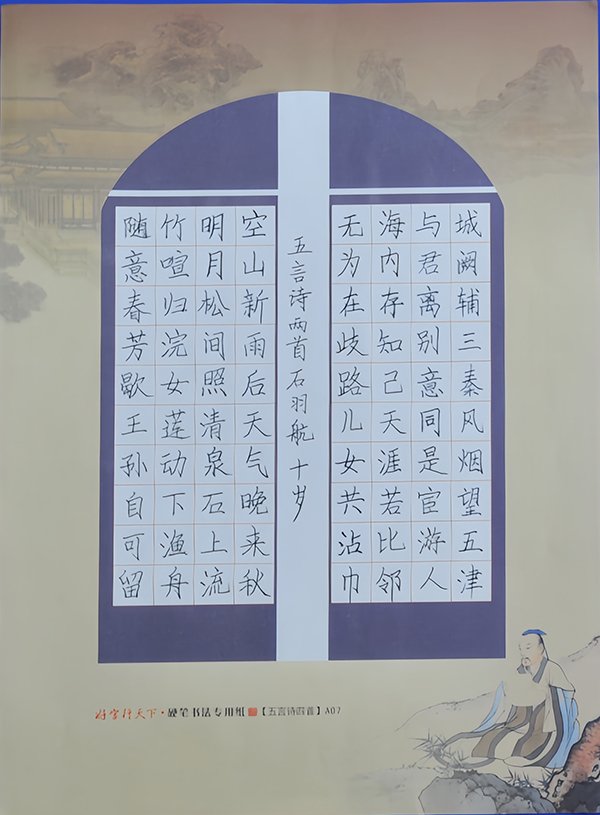 城阙辅三秦风烟望五津
与君离别意同是宦游人
海内存知己天涯若比邻
无为在歧路儿女共沾巾
五言诗两首石羽航十岁
空山新雨后天气晚来秋
明月松间照清泉石上流
竹喧归浣女莲动下渔舟
随意春芳歇王孙自可留
好字行天下·硬笔书法专用纸【五言诗四首】A07